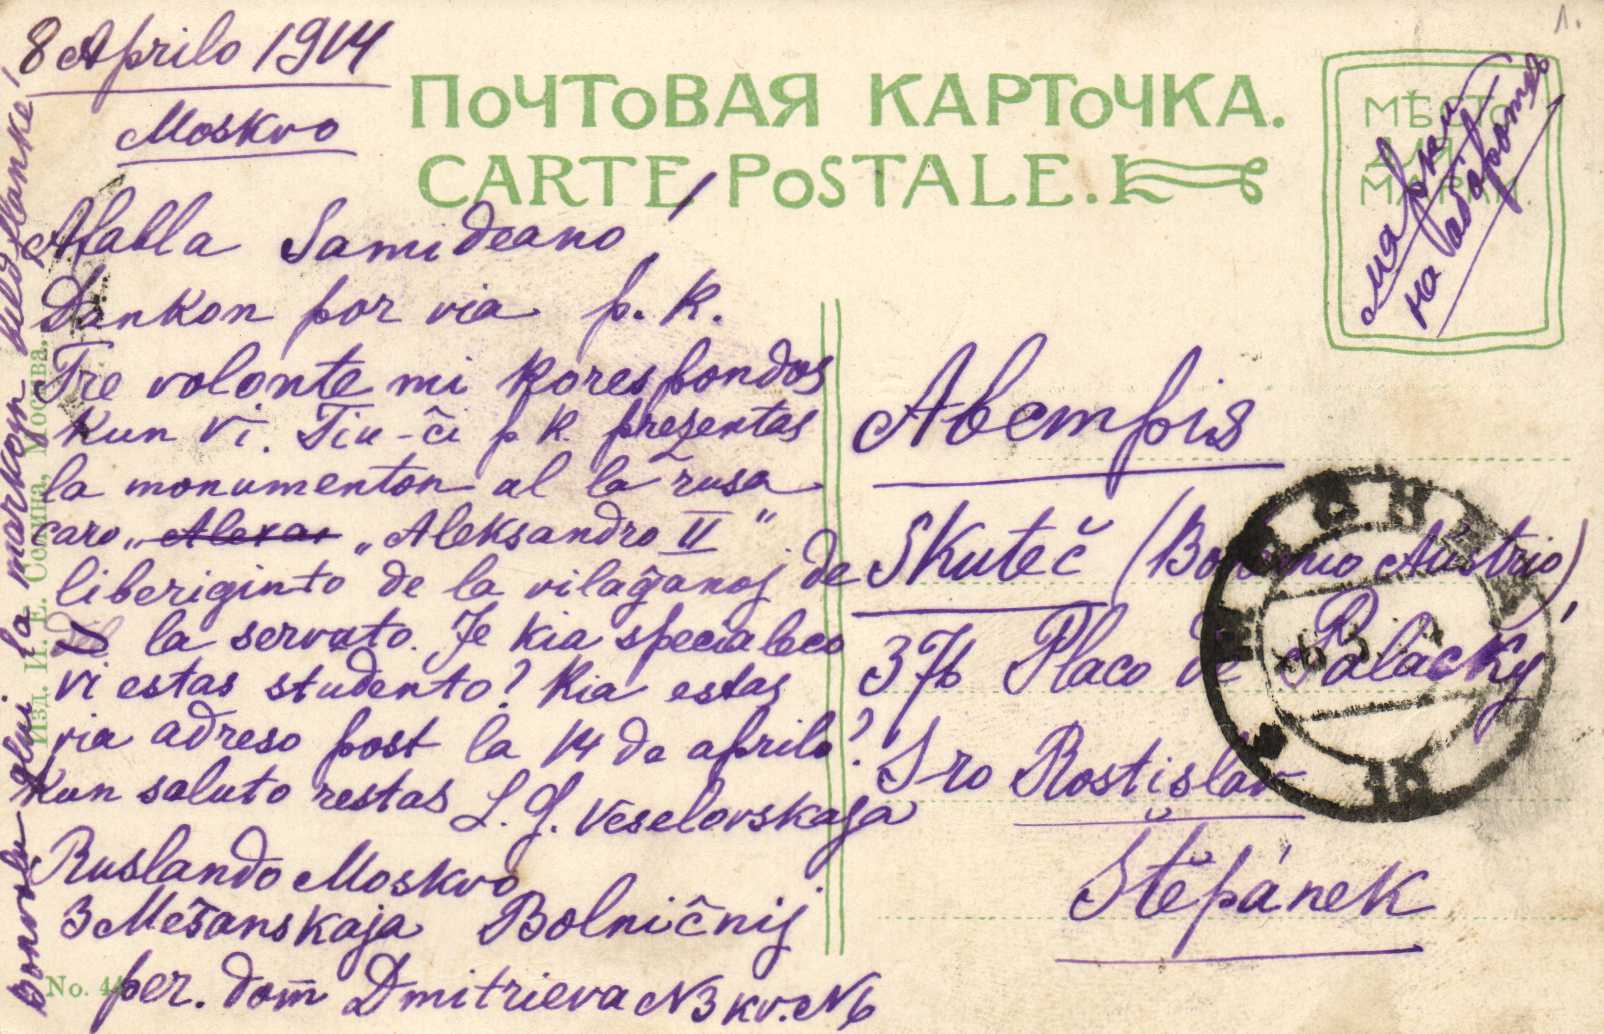 8 Aprilo 1914
Moskvo
ПОЧТОВАЯ КАРТОЧКА.
CARTE POSTALE.
МѢСТО
ДЛЯ
МАРКИ.
марки
на обороте
1.
Afabla Samideano!
Dankon por via p. k.
Tre volonte mi korespondos
kun vi. Tiu-ĉi p k. prezentas
la monumenton al la rusa
caro „Aleksandro II"
liberiginto de la vilaĝanoj de
la servuto. Je kia specialeco
vi estas studento? Kia estas
via adreso post la 14 de aprilo?
Kun saluto restas L. J. Veselovskaja
Ruslando Moskvo
3 Meŝanskaja Bolniĉnij
per. dom Dmitrieva N3 kv. N6
Bonvolu glui la markon
flanke!
Изд. И. Е. Селина, Москва.
No. 44
Skuteč (Bohemio Aŭstrio)
376 Placo de Palacký
S-ro Rostislav
Štěpánek
МОСКВА
18